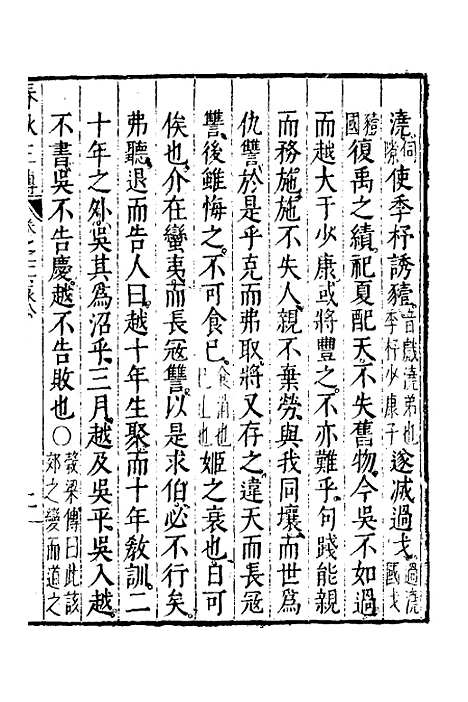 澆伺隙使季杼誘豷音戲澆弟也季杼少康子遂滅過戈過澆國戈
豷國復禹之績祀夏配天不失舊物今吳不如過
而越大于少康或將豐之不亦難乎句踐能親
而務施施不失人親不棄勞與我同壤而世為
仇讐於是乎克而弗取將又存之違天而長寇
讐後雖悔之不可食已食消也已止也姬之衰也日可
俟也介在蠻夷而長寇讐以是求伯必不行矣
弗聽退而告人曰越十年生聚而十年教訓二
十年之外吳其為沼乎三月越及吳平吳入越
不書吳不告慶越不告敗也〇穀梁傳曰此該郊之變而道之
春秋三傳